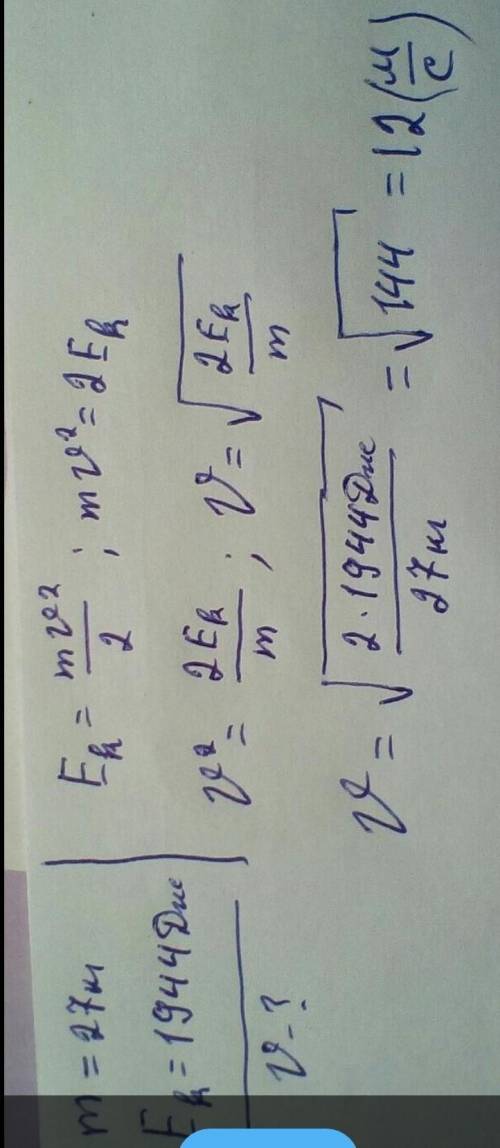 m = 27м
Eк = 1944Дж
v - ?
Eк = mv²/2 ; mv² = 2Eк
v² = 2Eк/m ; v = √(2Eк/m)
v = √(2·1944Дж/27м) = √144 = 12(м/с)